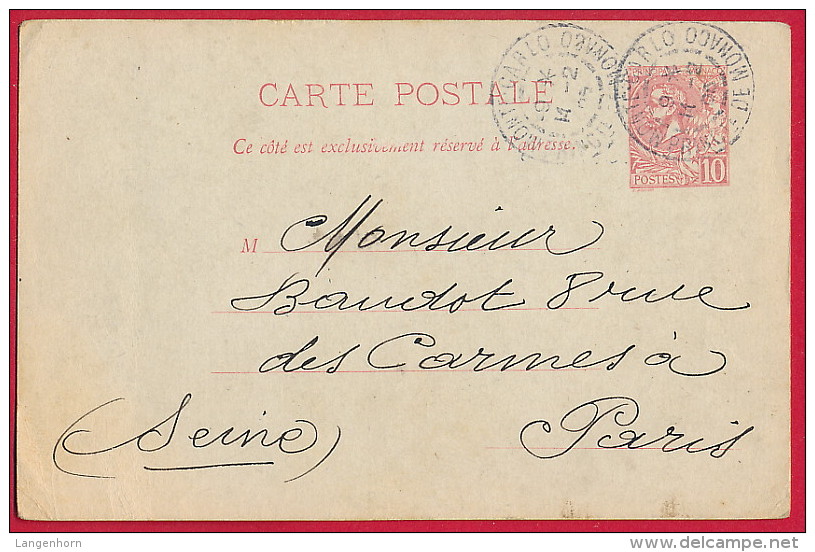 CARTE POSTALE
Ce côté est exclusivement réservé à l'adresse.
MONTE-CARLO
MONACO
MONTE-CARLO
DE MONACO
POSTES 10
M Monsieur
Baudot 8 rue
des Carmes à
Paris
(Seine)
Langenhorn
delcampe.net